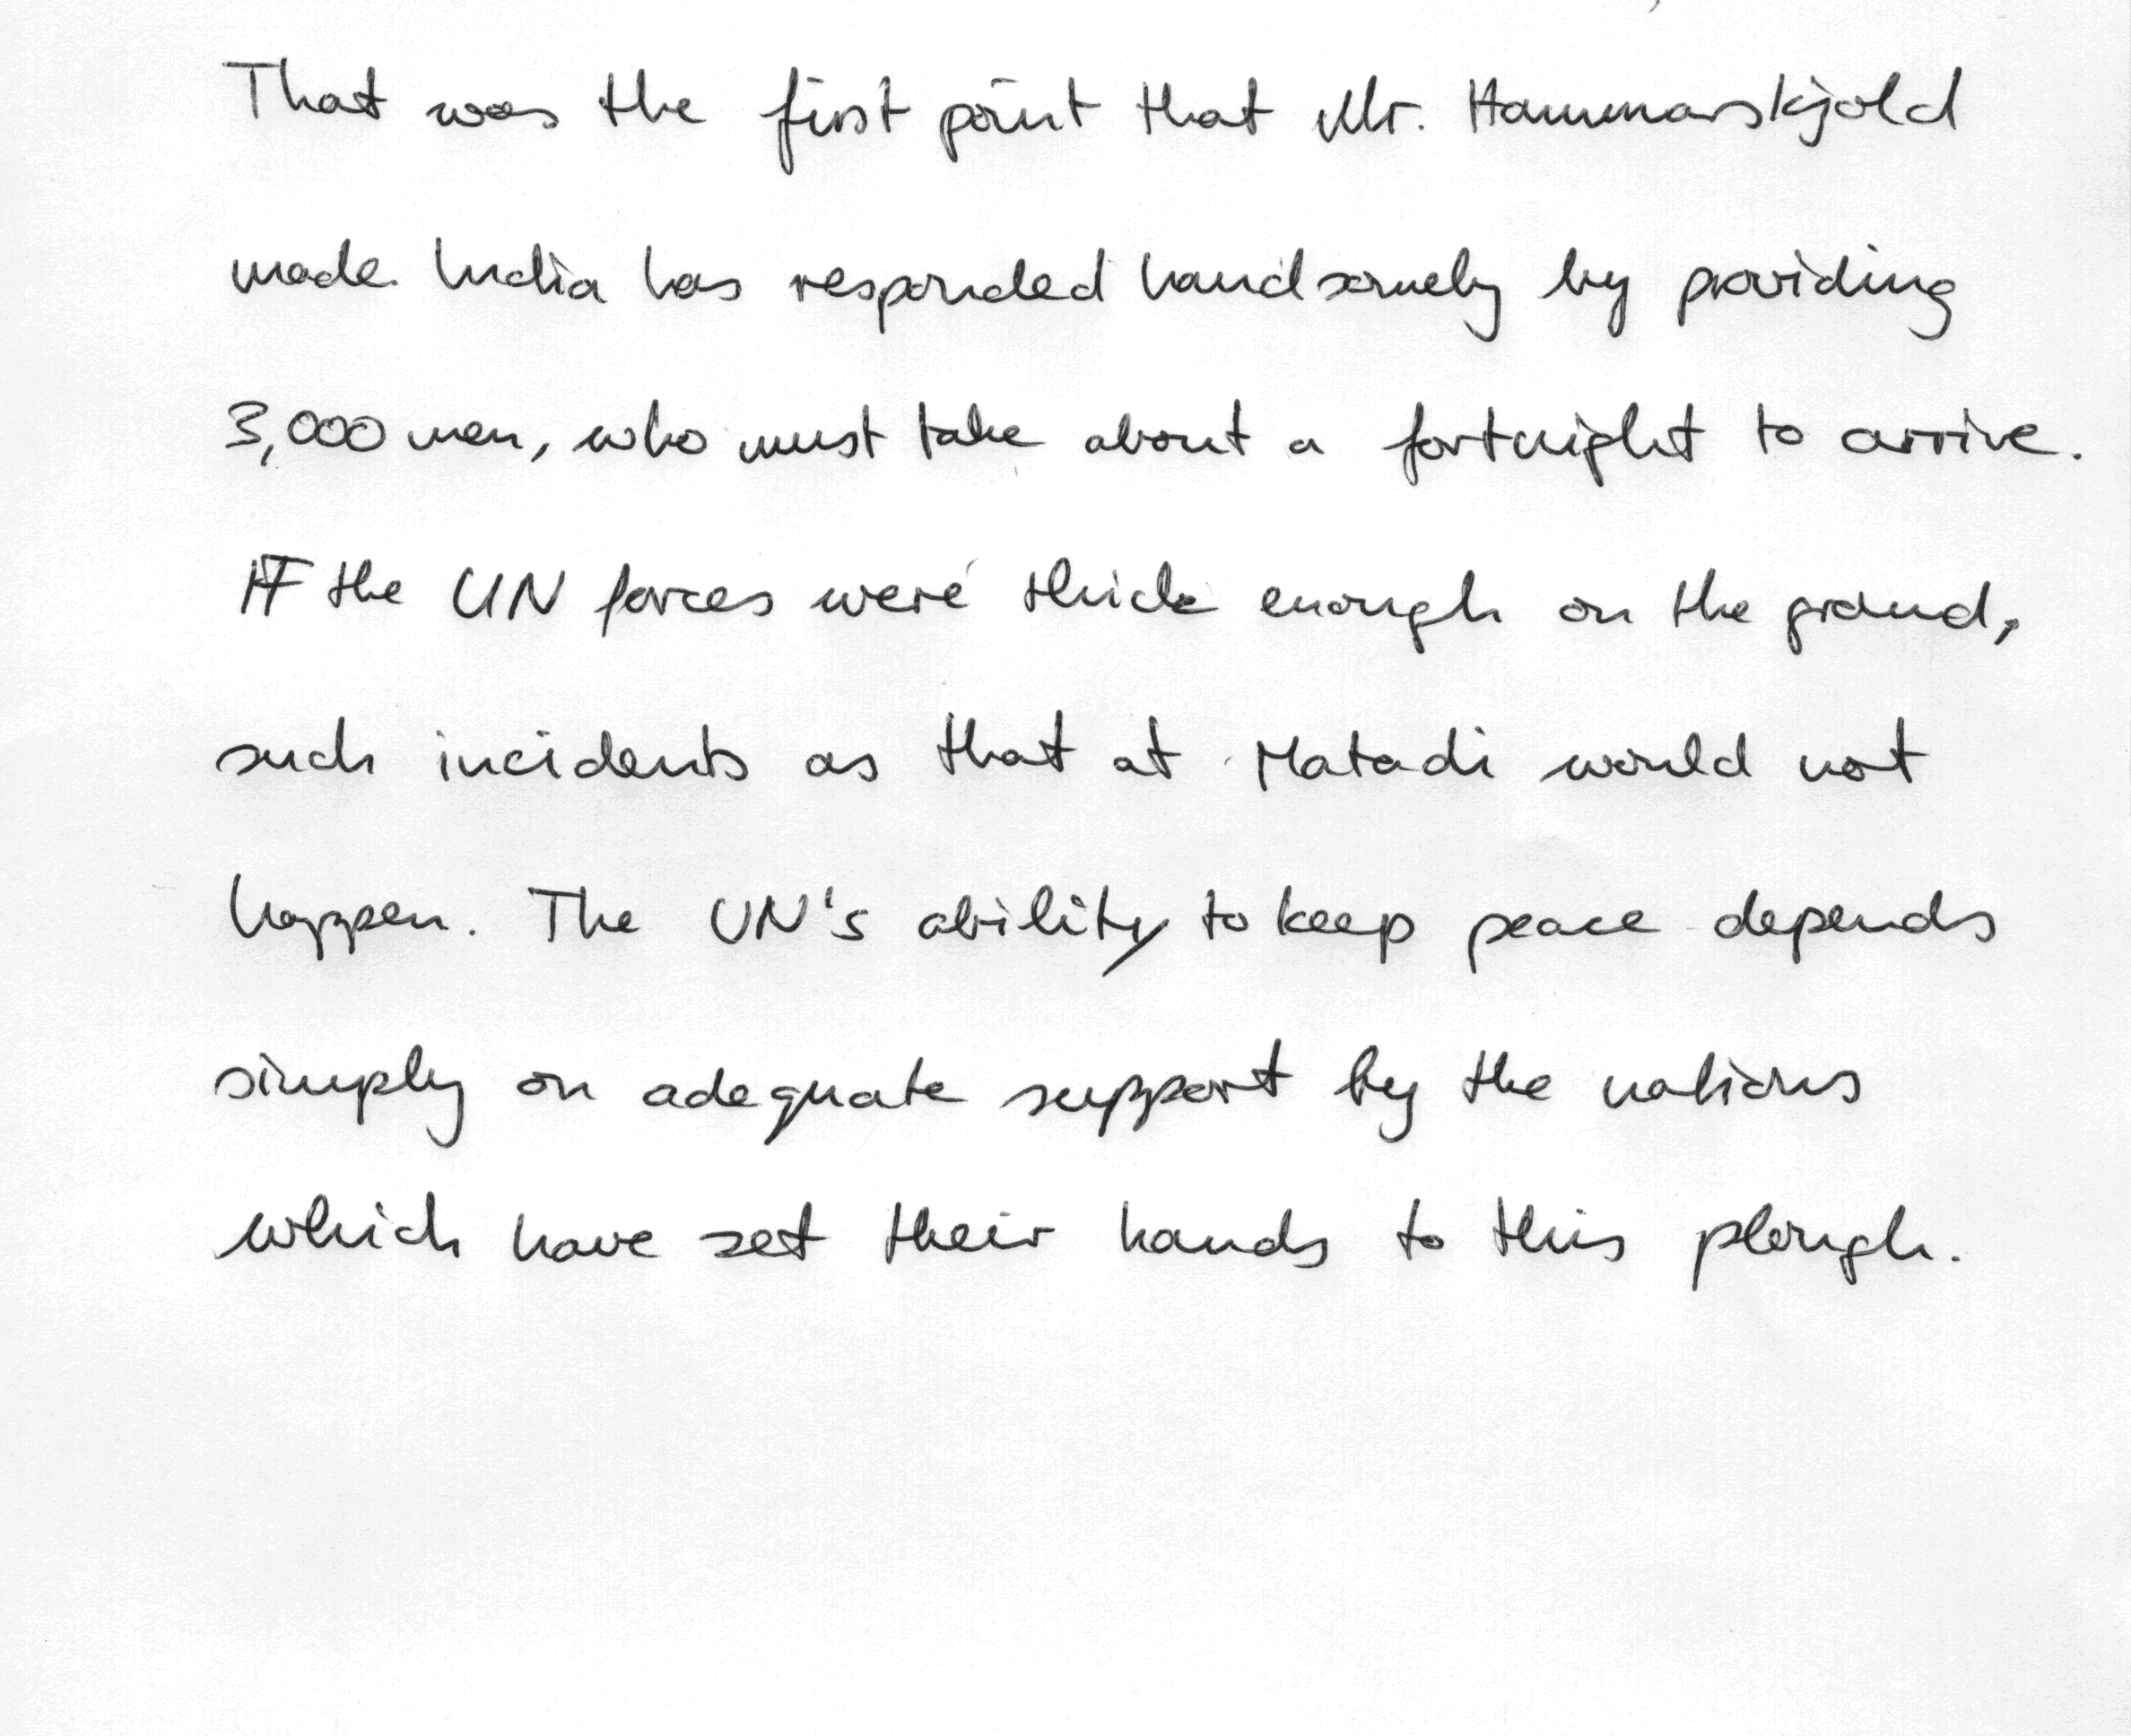 That was the first point that Mr. Hammarskjold
made. India has responded handsomely by providing
3,000 men, who must take about a fortnight to arrive.
IF the UN forces were thick enough on the ground,
such incidents as that at Matadi would not
happen. The UN's ability to keep peace depends
simply on adequate support by the nations
which have set their hands to this plough.